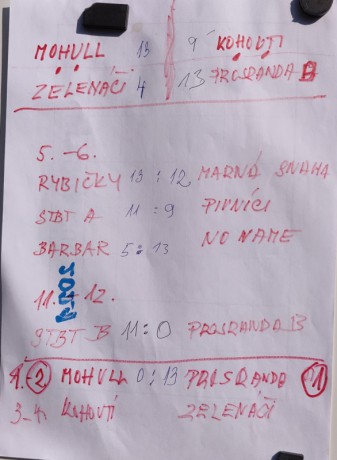 MOHULL 13 9 KOHOUTI
ZELENÁČI 4 13 PROSRANDA B
5. - 6.
RYBIČKY 13 : 12 MARNÁ SNAHA
STBT A 11 : 9 PIVNÍCI
BARBAR 5 : 13 NO NAME
11. - 12.
STBT B 11 : 0 PROSRANDA B
1. - 2 MOHULL 0 : 13 PROSRANDO 1
3-4. KOHOUTÍ ZELENÁČI